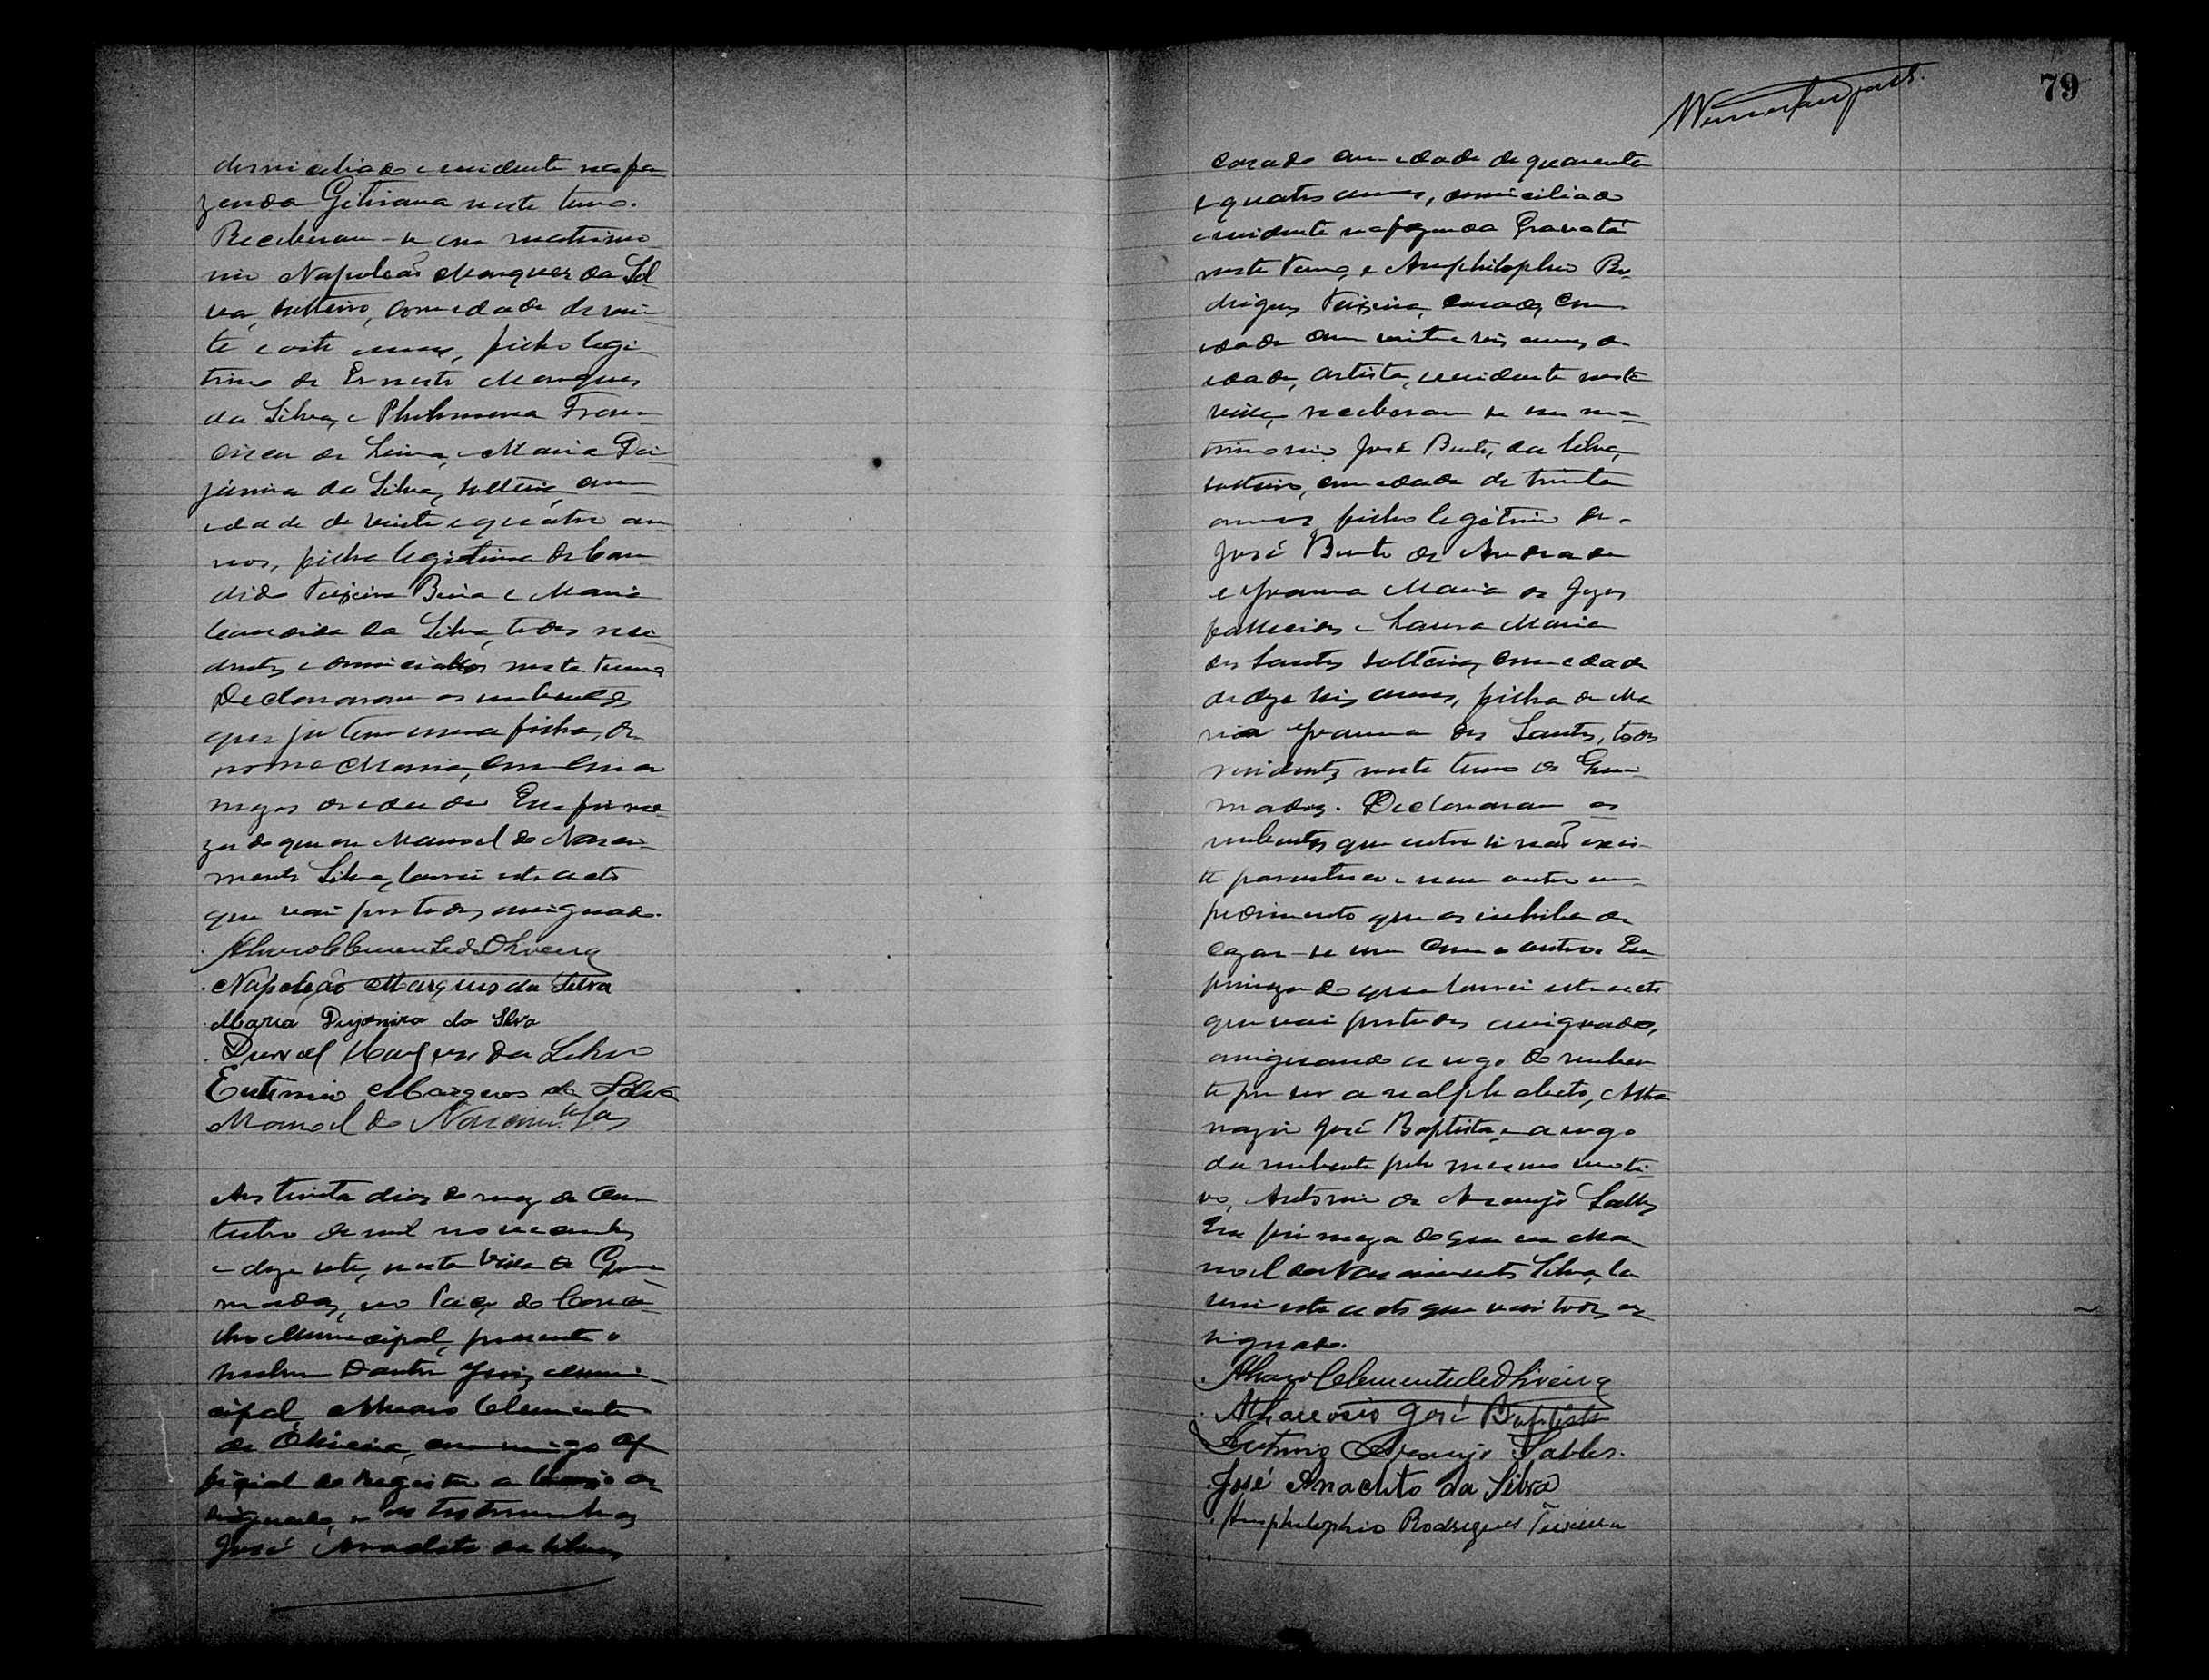 domiciliado e residente na fa
zenda Gitirana neste termo.
Receberam-se em matrimo
nio Napoleão Marques da Sil
va, solteiro, com edade de vin
te e oito annos, filho legi
timo de Ernesto Marques
da Silva, e Philomena Fran
cisca de Lima, e Maria De
janira da Silva, solteira, com
edade de vinte e quatro an
nos, filha legitima de Can
dido Teixeira Bina e Maria
Candida da Silva, todos resi
dentes e domiciliados neste termo
Declararam os nubentes
que ja tem uma filha, de
nome Maria, com cinco
mezes de edade. Em firme
za do que eu Manoel do Nasci
mento Silva, lavrei este acto
que vai por todos assignado.
Alvaro Clemente de Oliveira
Napoleão Marques da Silva
Maria Dejanira da Silva
Durval Marques da Silva
Eutimio Marques da Silva
Manoel do Nascimto Sa
Aos trinta dias do mez de Ou
tubro de mil novecentos
e dezesete, nesta Villa de
no Paço do Conce
lho Municipal, presente o
senhor Doutor Juiz Muni
cipal Alvaro Clemente
de Oliveira, commigo of
ficial do registro a baixo as
signado, e as testemunhas
José Anacleto da Silva,
79
casado com edade de quarenta
e quatro annos, domiciliado
e residente na fazenda Gravatá
neste termo, e Amphilophio Ro
drigues Teixeira, casado, com
edade com vinte e seis annos de
edade, artista, residente nesta
villa, receberam-se em ma
trimonio José Bento da Silva,
solteiro, com edade de trinta
annos, filho legitimo de
José Bento de Andrade
e Joanna Maria de Jezus
fallecidos e Laura Maria
dos Santos solteira, com edade
de dezeseis annos, filha de Ma
ria Joanna dos Santos, todos
residentes neste termo de
Declararam os
nubentes que entre si não exis
te parentesco e nem outro im
pedimento que os inhiba de
cazar-se um com o outro. Em
firmeza do que lavrei este acto
que vai por todos assignado,
assignando a rogo do nuben
te por ser analphabeto, Atha
nazio José Baptista, e a rogo
da nubente pelo mesmo moti
vo, Antonio de Araujo Salles
Em firmeza do que eu Ma
noel do Nascimento Silva, la
vrei este acto que vai todos as
signado.
Alvaro Clemente de Oliveira
Athanosio José Baptista
Antonio Araujo Salles.
José Anacleto da Silva
Amphilophio Rodrigues Teixeira